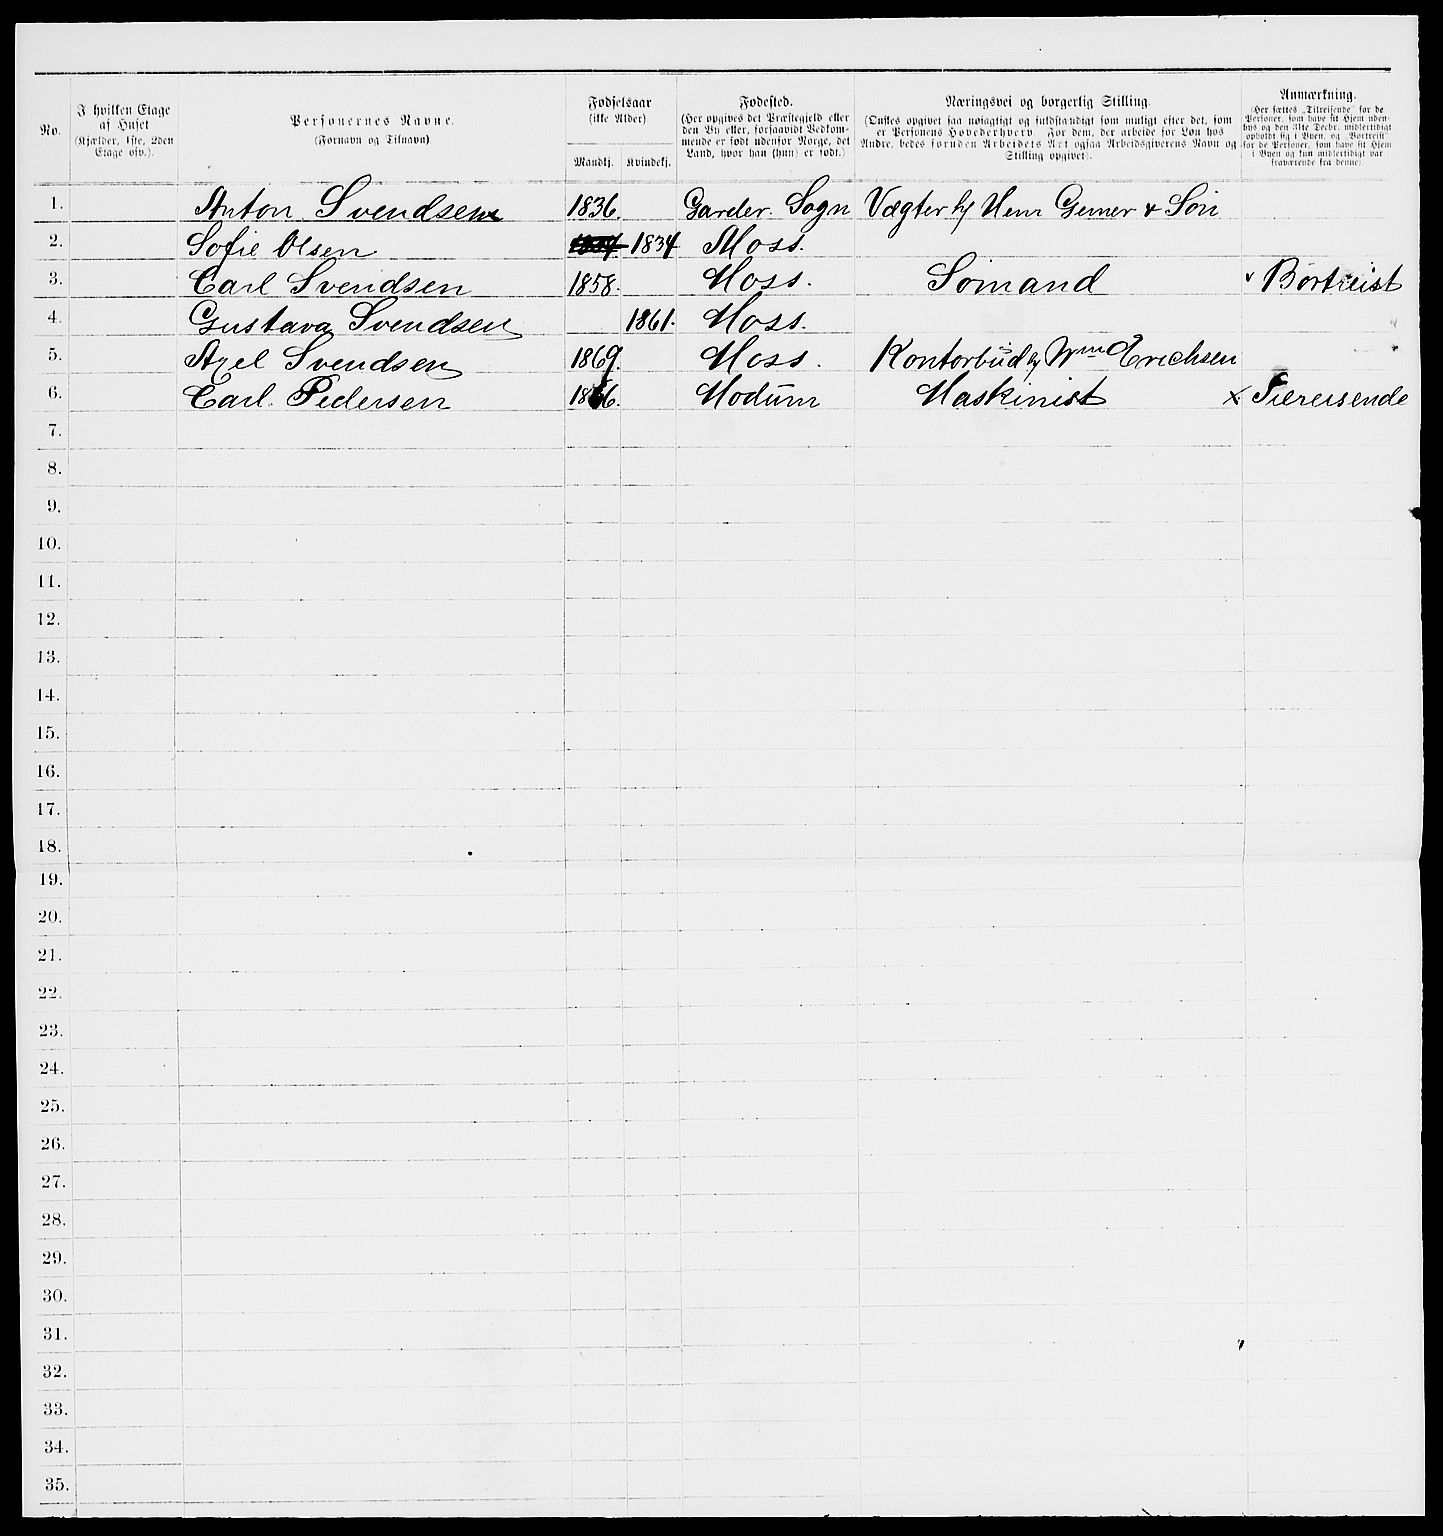 No.
I hvilken Etage
af Huset
(Kjælder, 1ste, 2den
Etage osv.).
Personernes Navne.
(Fornavn og Tilnavn).
Fødselsaar
(ikke Alder)
Mandkj.
Kvindekj.
Fødested.
(Her opgives det Præstegjeld eller
den By eller, forsaavidt Vedkom-
mende er født udenfor Norge, det
Land, hvor han (hun) er født.)
Næringsvei og borgerlig Stilling.
(Ønskes opgivet saa nøiagtigt og fuldstændigt som muligt efter det, som
er Personens Hovederhverv. For dem, der arbeide for Løn hos
Andre, bedes foruden Arbeidets Art ogsaa Arbeidsgiverens Navn og
Stilling opgivet).
Anmærkning.
(Her sættes „Tilreisende" for de
Personer, som have sit Hjem uden-
bys og den 31te Decbr. midlertidigt
opholdt sig i Byen, og „Bortreist"
for de Personer, som have sit Hjem
i Byen og kun midlertidigt var
fraværende fra denne).
1. Anton Svendsen 1836. Garder. Sogn Vægter hj Herr Gerner & Søn
2. Sofie Olsen 1834 Moss.
3. Carl Svendsen 1858. Moss. Sømand v Bortreist
4. Gustava Svendsen 1861. Moss.
5. Axel Svendsen 1869. Moss. Kontorbud hj Wm Erichsen
6. Carl. Pedersen 1866. Modum Maskinist x Tilreisende
7.
8.
9.
10.
11.
12.
13.
14.
15.
16.
17.
18.
19.
20.
21.
22.
23.
24.
25.
26.
27.
28.
29.
30.
31.
32.
33.
34.
35.